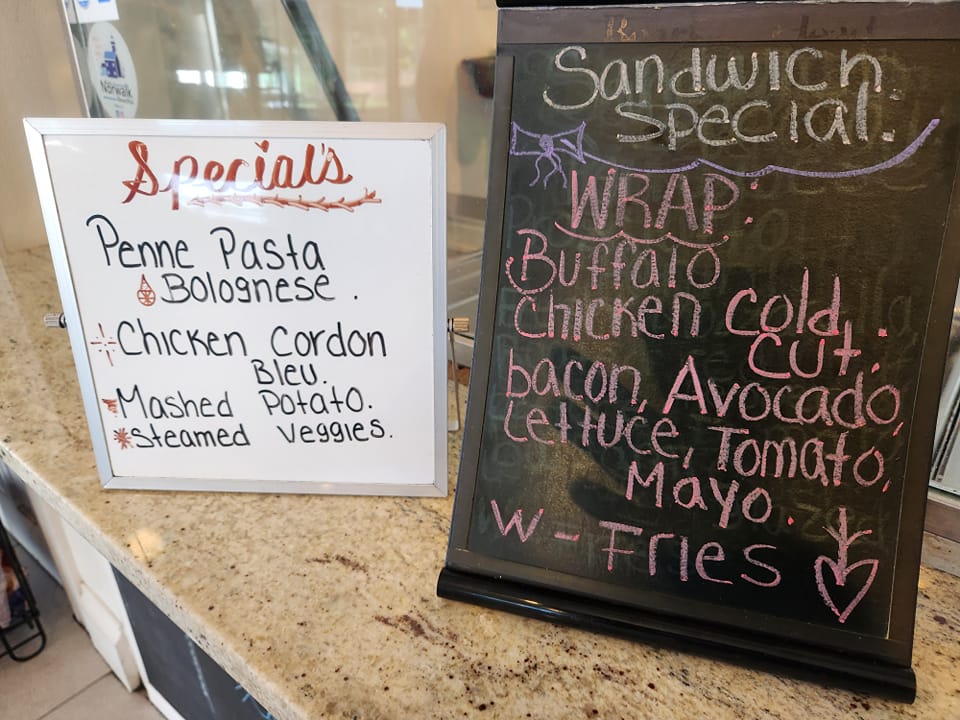 Norwalk
Special's
Penne Pasta
Bolognese.
Chicken Cordon
Bleu.
Mashed Potato.
Steamed Veggies.
Sandwich
Special:
WRAP:
Buffalo
Chicken Cold
Cut.
bacon, Avocado,
Lettuce, Tomato,
Mayo.
W - Fries